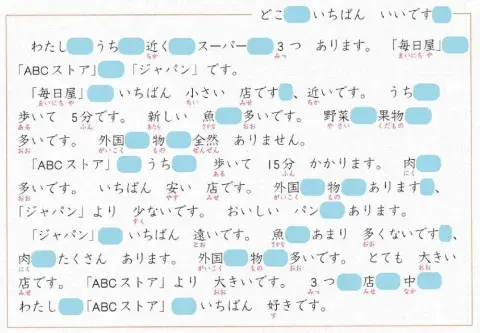 どこ いちばん いいです
わたし うち 近く スーパー 3つ あります。「毎日屋」
「ABCストア」 「ジャパン」です。
「毎日屋」 いちばん 小さい 店です 、近いです。 うち
歩いて 5分です。 新しい 魚 多いです。 野菜 果物
多いです。 外国 物 全然 ありません。
「ABCストア」 うち 歩いて 15分 かかります。 肉
多いです。 いちばん 安い 店です。 外国 物 あります 、
「ジャパン」より 少ないです。 おいしい パン あります。
「ジャパン」 いちばん 遠いです。 魚 あまり 多くないです 、
肉 たくさん あります。 外国 物 多いです。 とても 大きい
店です。「ABCストア」より 大きいです。 3つ 店 中
わたし 「ABCストア」 いちばん 好きです。